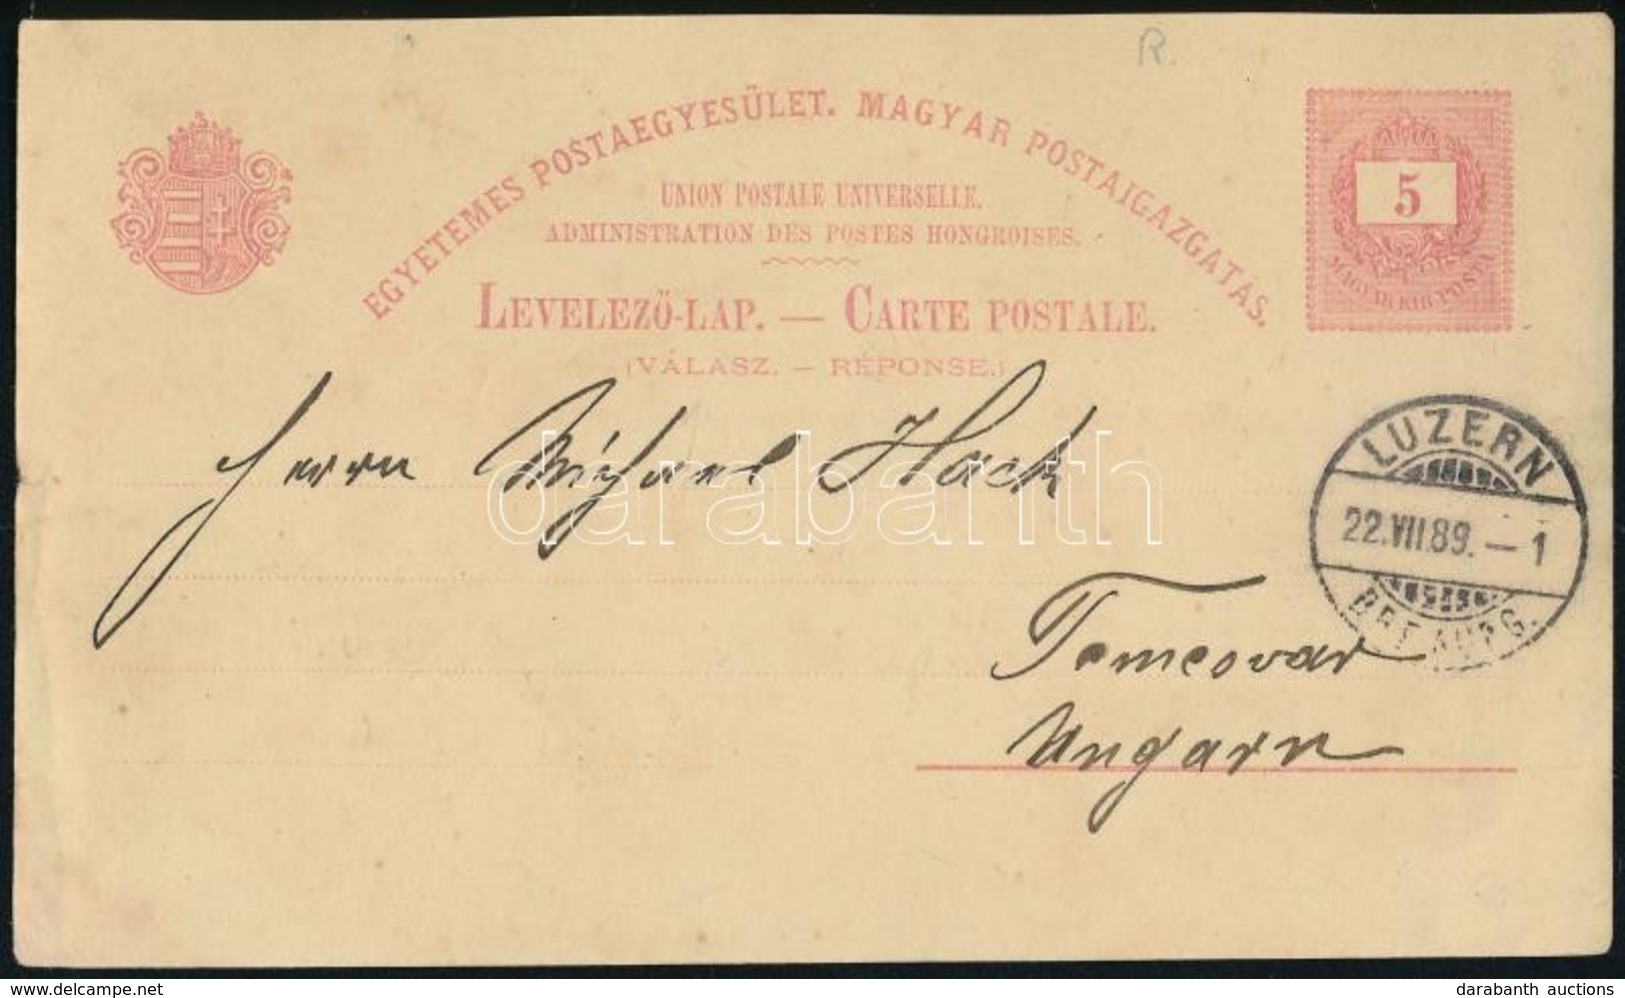 R.
EGYETEMES POSTAEGYESÜLET. MAGYAR POSTAIGAZGATÁS.
UNION POSTALE UNIVERSELLE.
ADMINISTRATION DES POSTES HONGROISES.
LEVELEZŐ-LAP. — CARTE POSTALE.
(VÁLASZ. — RÉPONSE.)
5
MAGYAR KIR. POSTA
Herrn Michael Hack
LUZERN
22.VII.89.—1
Temesvar
Ungarn
darabanth
www.delcampe.net
darabanth auctions